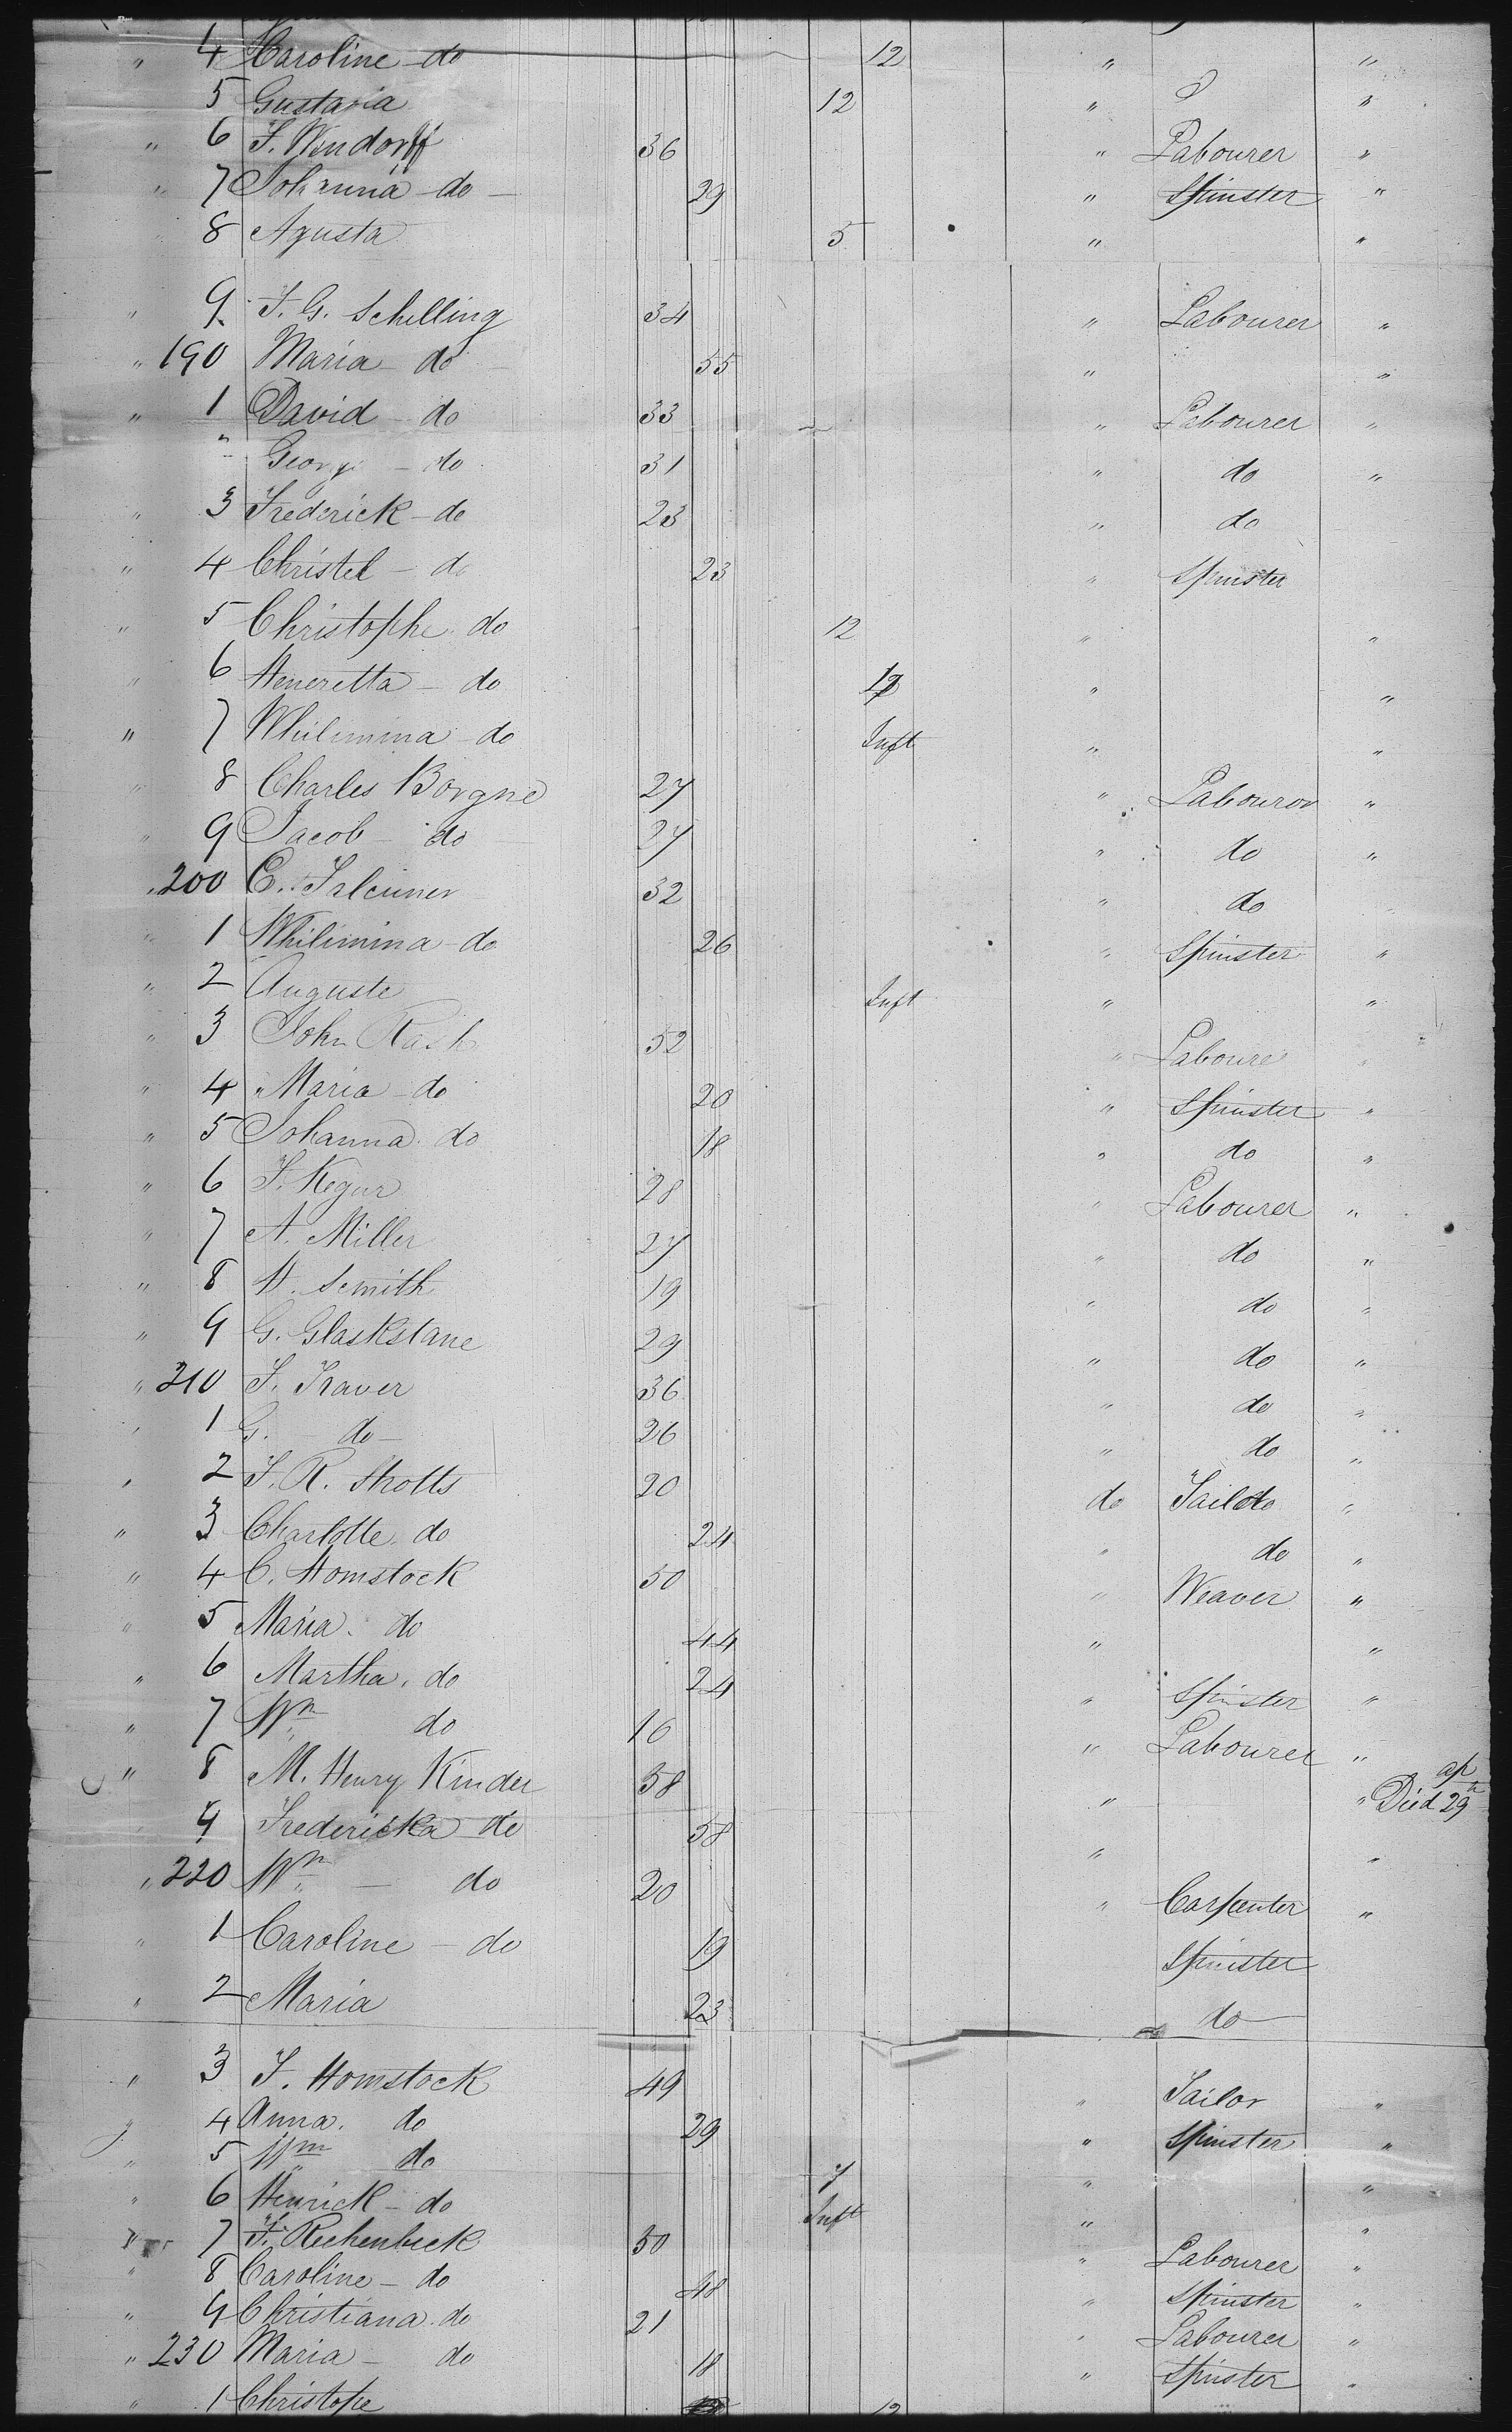 " 4 Caroline do 12 " "
5 Gustavia 12 " "
" 6 F. Wendorff 36 " Labourer "
" 7 Johanna do 29 " Spinster "
8 Agusta 5 " "
" 9 F. G. Schelling 34 " Labourer "
" 190 Maria do 55 " "
" 1 David do 33 " Labourer "
" George do 31 " do "
" 3 Frederick do 23 " do
" 4 Christel do 23 " Spinster
" 5 Christophe do 12 " "
" 6 Heneretta do " "
" 7 Whilimina do Inft " "
" 8 Charles Borgne 27 " Labourer "
" 9 Jacob do 27 " do "
" 200 C. 32 " do
" 1 Whilimina do 26 " Spinster "
" 2 Auguste Inft " "
" 3 John Rash 52 " Laboure
" 4 Maria do 20 " Spinster "
" 5 Johanna do 18 " do "
" 6 F. Kegur 28 " Labourer "
" 7 A. Miller 27 " do "
" 8 H. Semith 19 " do "
" 9 G. Glaskstane 29 " do "
" 210 F. Traver 36 " do "
" 1 G. do 26 " do "
" 2 F. R. Stotts 20 do "
" 3 Charlotte do 24 " do "
" 4 C. Homstock 50 " Weaver "
" 5 Maria do 44 " "
" 6 Martha do 24 " Spinster "
" 7 Wm do 16 " Labourer "
" 8 M. Henry Kinder 58 " " Died 29th ap
9 Fredericka do 58 " "
" 220 Wm do 20 " Carpenter "
" 1 Caroline do 19 Spinster
" 2 Maria 23 do
" 3 F. Homstock 49 " Tailor "
4 Anna do 29 " Spinster "
" 5 Wm do 7 " "
" 6 Henrick do Inft " "
" 7 F. Rechenbeck 50 " Labourer "
" 8 Caroline do 48 " Spinster "
" 9 Christiana do 21 " Labourer "
" 230 Maria do 18 " Spinster "
" 1 Christope 12